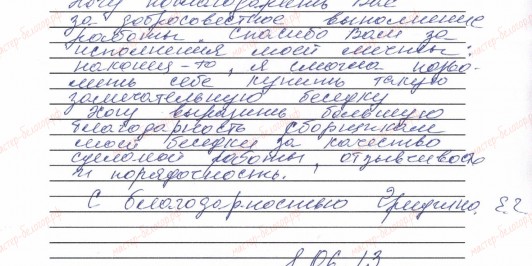 Хочу поблагодарить Вас
за добросовестное выполнение
работы. Спасибо Вам за
исполнения моей мечты:
наконец-то, я смогла позво-
лить себе купить такую
замечательную беседку
Хочу выразить большую
благодарность сборщикам
моей беседки за качество
сделаной работы, отзывчивость
и порядочность.
С благодарностью